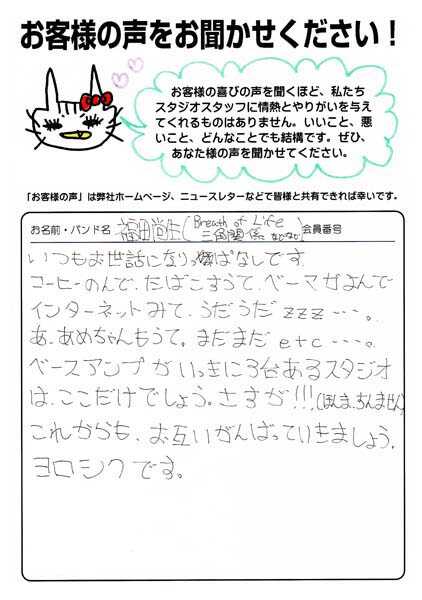 お客様の声をお聞かせください！
お客様の喜びの声を聞くほど、私たち
スタジオスタッフに情熱とやりがいを与え
てくれるものはありません。いいこと、悪
いこと、どんなことでも結構です。ぜひ、
あなた様の声を聞かせてください。
「お客様の声」は弊社ホームページ、ニュースレターなどで皆様と共有できれば幸いです。
お名前・バンド名 福田尚生(Breath of Life
三角関係 などなど) 会員番号
いつもお世話になりっぱなしです。
コーヒーのんで、たばこすうて、ベーマガよんで
インターネットみて、うだうだ zzz・・・。
あ、あめちゃんもうて。まだまだ etc・・・。
ベースアンプがいっきに3台あるスタジオ
は、ここだけでしょう。さすが!!!(ほんま、すんません)
これからも、お互いがんばっていきましょう。
ヨロシクです。